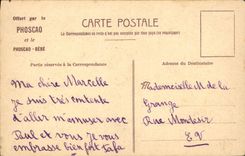 Offert par le
PHOSCAO
et le
PHOSCAO-BÉBÉ
CARTE POSTALE
La Correspondance au recto n'est pas acceptée par tous pays
Partie réservée à la Correspondance
Adresse du Destinataire
Ma chère Marcelle
Je suis très contente
d'aller m'amuser avec
Paul et vous je vous
embrasse bien fort
Mademoiselle M. de la
Grange
Rue
E.V